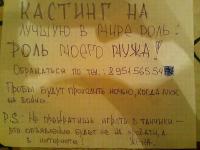 КАСТИНГ НА
ЛУЧШУЮ В МИРЕ РОЛЬ:
РОЛЬ МОЕГО МУЖА!
ОБРАЩАТЬСЯ ПО ТЕЛ.: 8 951 565 54
ПРОБЫ БУДУТ ПРОХОДИТЬ НОЧЬЮ, КОГДА МУЖ
НА ВОЙНЕ.
P.S.: НЕ ПРЕКРАТИШЬ ИГРАТЬ В ТАНЧИКИ -
ЭТО ОБЪЯВЛЕНИЕ БУДЕТ НЕ НА КРОВАТИ, А
В ИНТЕРНЕТЕ! ЖЕНА.